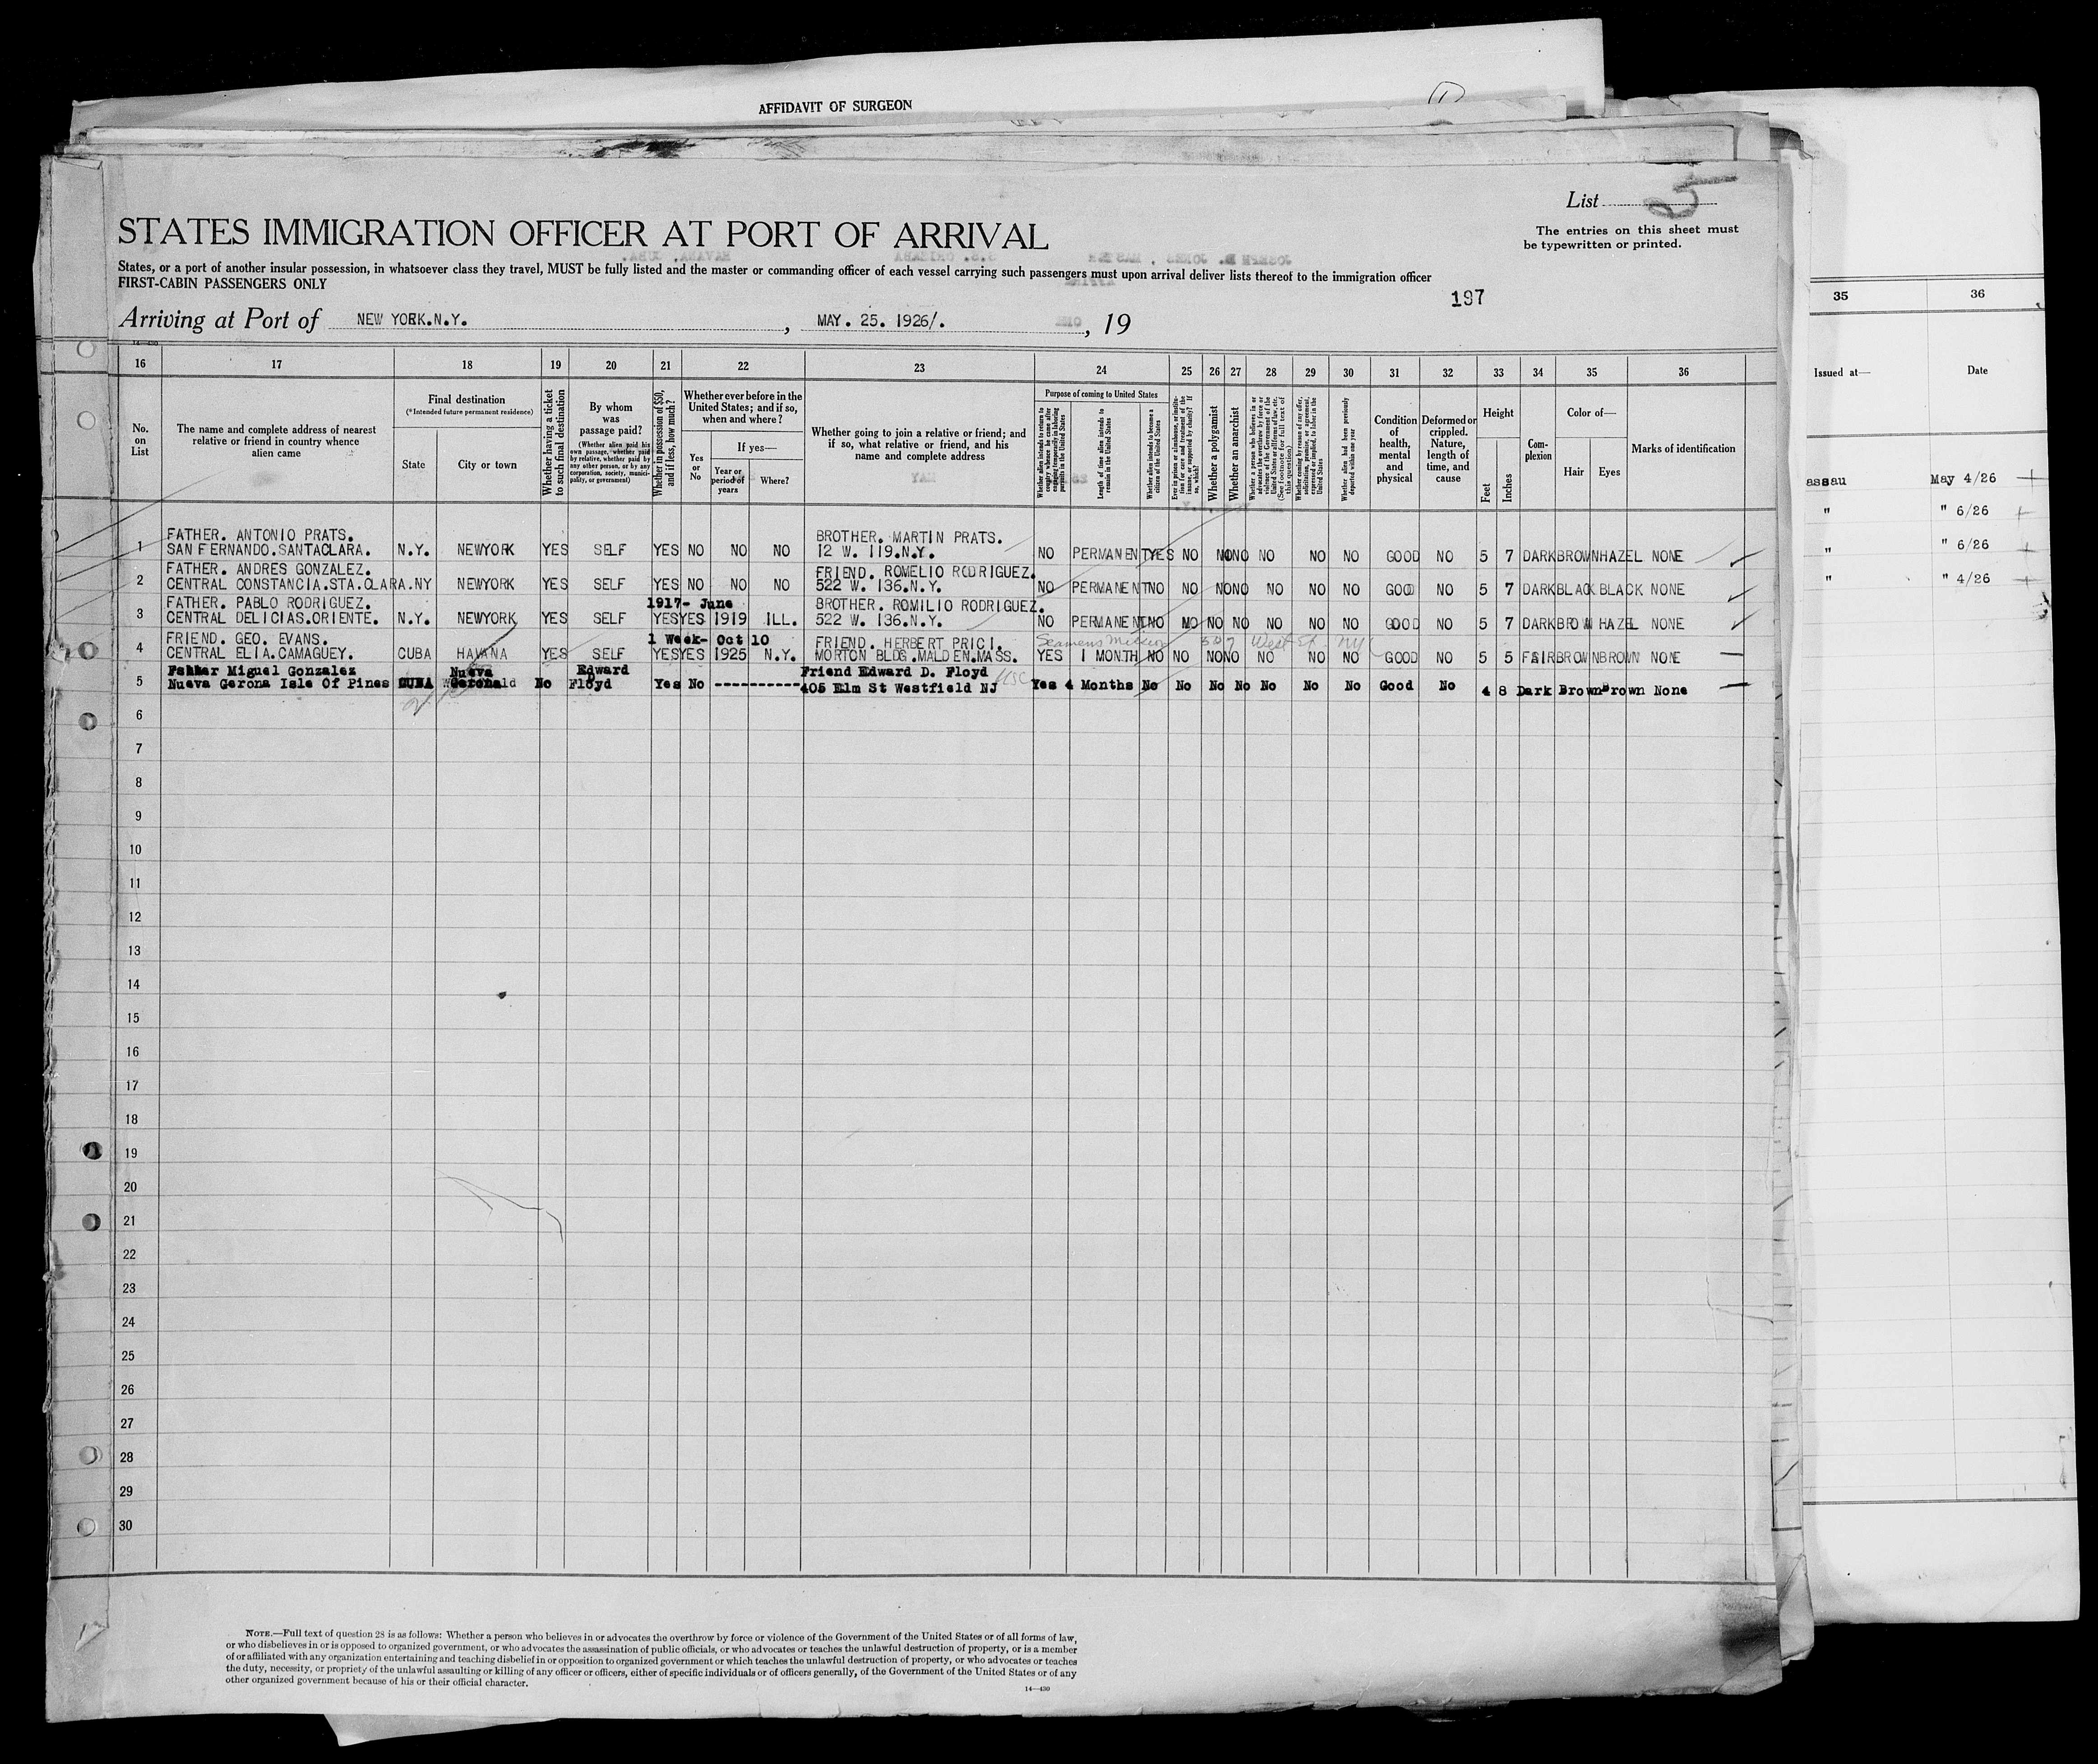 AFFIDAVIT OF SURGEON
List 5
The entries on this sheet must
be typewritten or printed.
STATES IMMIGRATION OFFICER AT PORT OF ARRIVAL
States, or a port of another insular possession, in whatsoever class they travel, MUST be fully listed and the master or commanding officer of each vessel carrying such passengers must upon arrival deliver lists thereof to the immigration officer
FIRST-CABIN PASSENGERS ONLY
197
Arriving at Port of NEW YORK.N.Y. , MAY. 25. 1926/. , 19
14-430
16 17 18 19 20 21 22 23 24 25 26 27 28 29 30 31 32 33 34 35 36
No. on List
The name and complete address of nearest relative or friend in country whence alien came
Final destination
(*Intended future permanent residence)
State
City or town
Whether having a ticket to such final destination
By whom was passage paid?
(Whether alien paid his own passage, whether paid by relative, whether paid by any other person, or by any corporation, society, municipality, or government)
Whether in possession of $50, and if less, how much?
Whether ever before in the United States; and if so, when and where?
Yes or No
If yes—
Year or period of years
Where?
Whether going to join a relative or friend; and if so, what relative or friend, and his name and complete address
Purpose of coming to United States
Whether alien intends to return to country whence he came after engaging temporarily in laboring pursuits in the United States
Length of time alien intends to remain in the United States
Whether alien intends to become a citizen of the United States
Ever in prison or almshouse, or institution for care and treatment of the insane, or supported by charity? If so, which?
Whether a polygamist
Whether an anarchist
Whether a person who believes in or advocates the overthrow by force or violence of the Government of the United States or all forms of law, etc. (See footnote for full text of this question)
Whether coming by reason of any offer, solicitation, promise, or agreement, expressed or implied, to labor in the United States
Whether alien had been previously deported within one year
Condition of health, mental and physical
Deformed or crippled. Nature, length of time, and cause
Height
Feet
Inches
Complexion
Color of—
Hair
Eyes
Marks of identification
FATHER. ANTONIO PRATS. BROTHER. MARTIN PRATS.
1 SAN FERNANDO.SANTACLARA. N.Y. NEWYORK YES SELF YES NO NO NO 12 W. 119.N.Y. NO PERMANENT YES NO NO NO NO NO NO GOOD NO 5 7 DARK BROWN HAZEL NONE
FATHER. ANDRES GONZALEZ. FRIEND. ROMELIO RODRIGUEZ.
2 CENTRAL CONSTANCIA.STA.CLARA.NY NEWYORK YES SELF YES NO NO NO 522 W. 136.N.Y. NO PERMANENT NO NO NO NO NO NO NO GOOD NO 5 7 DARK BLACK BLACK NONE
FATHER. PABLO RODRIGUEZ. 1917- June BROTHER. ROMILIO RODRIGUEZ.
3 CENTRAL DELICIAS.ORIENTE. N.Y. NEWYORK YES SELF YES YES 1919 ILL. 522 W. 136.N.Y. NO PERMANENT NO NO NO NO NO NO NO GOOD NO 5 7 DARK BROW HAZEL NONE
FRIEND. GEO. EVANS. 1 Week- Oct 10 FRIEND. HERBERT PRICI. Seamens Mission 507 West St. NY
4 CENTRAL ELIA.CAMAGUEY. CUBA HAVANA YES SELF YES YES 1925 N.Y. MORTON BLDG.MALDEN.MASS. YES 1 MONTH NO NO NO NO NO NO NO GOOD NO 5 5 FAIR BROWN BROWN NONE
Father Miguel Gonzalez Nueva Edward D Friend Edward D. Floyd
5 Nueva Gerona Isle Of Pines CUBA Gerona No Floyd Yes No ---------- 405 Elm St Westfield NJ Yes 4 Months No No No No No No No Good No 4 8 Dark Brown Brown None
6
7
8
9
10
11
12
13
14
15
16
17
18
19
20
21
22
23
24
25
26
27
28
29
30
NOTE.—Full text of question 28 is as follows: Whether a person who believes in or advocates the overthrow by force or violence of the Government of the United States or of all forms of law,
or who disbelieves in or is opposed to organized government, or who advocates the assassination of public officials, or who advocates or teaches the unlawful destruction of property, or is a member
of or affiliated with any organization entertaining and teaching disbelief in or opposition to organized government or which teaches the unlawful destruction of property, or who advocates or teaches
the duty, necessity, or propriety of the unlawful assaulting or killing of any officer or officers, either of specific individuals or of officers generally, of the Government of the United States or of any
other organized government because of his or their official character.
14—430
35 36
Issued at— Date
assau May 4/26
" " 6/26
" " 6/26
" " 4/26